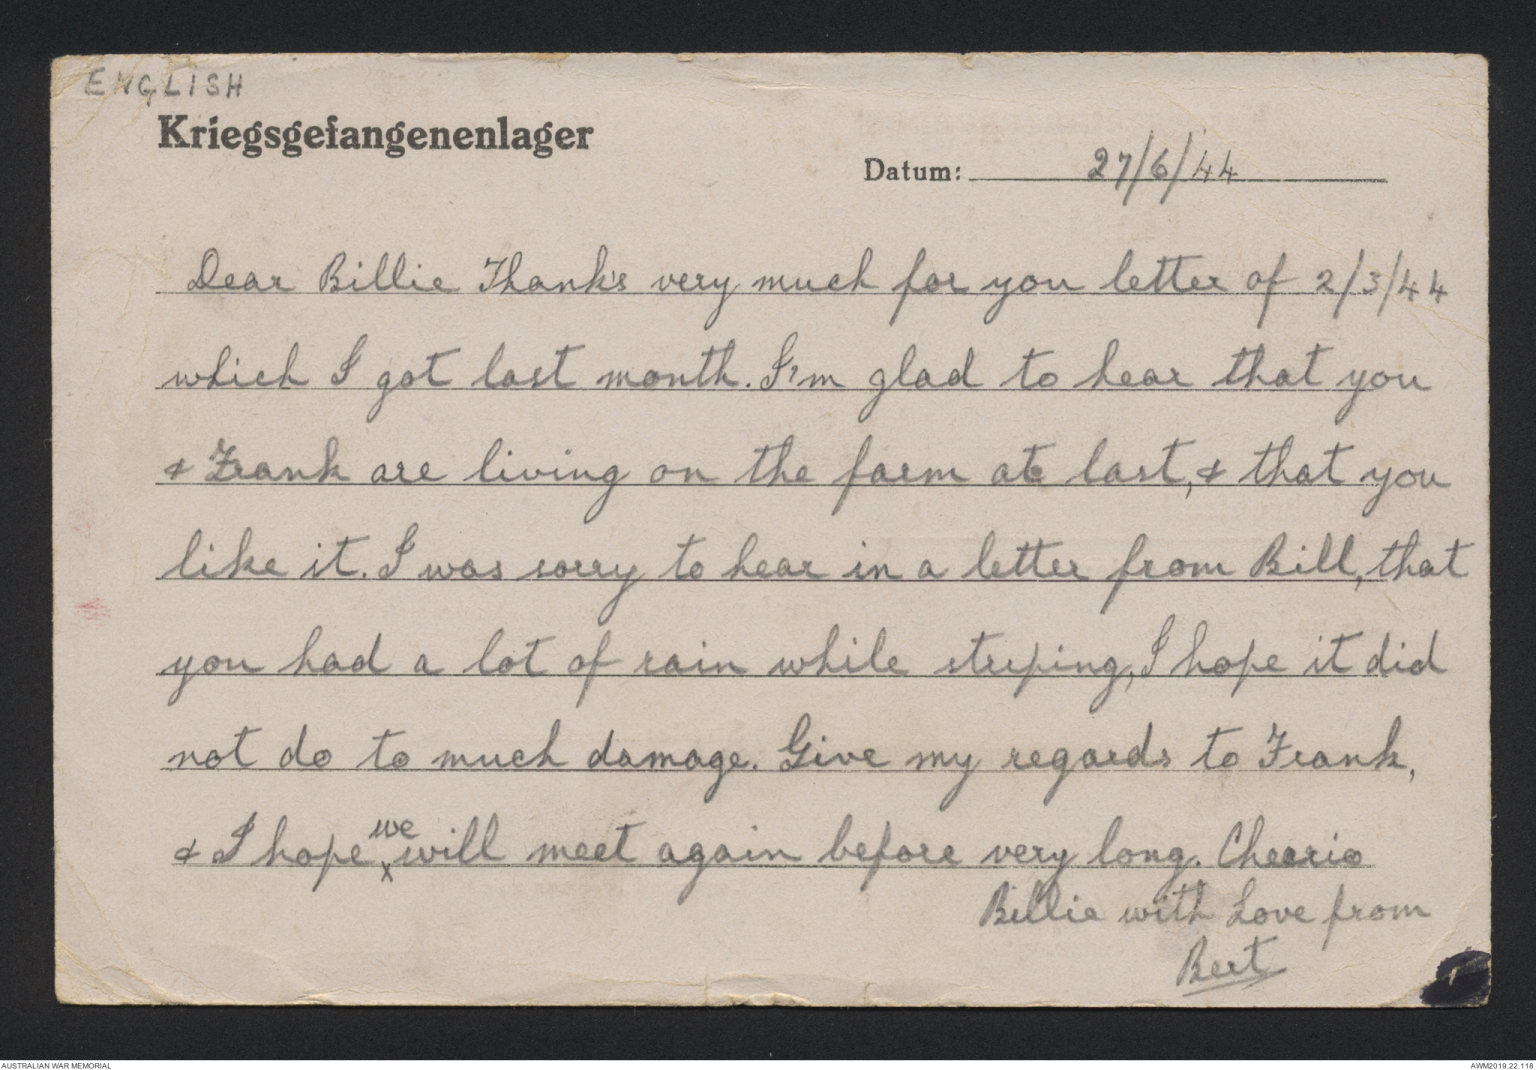 ENGLISH
Kriegsgefangenenlager
Datum: 27/6/44
Dear Billie Thank's very much for you letter of 2/3/44
which I got last month. I'm glad to hear that you
& Frank are living on the farm at last, & that you
like it. I was sorry to hear in a letter from Bill, that
you had a lot of rain while striping, I hope it did
not do to much damage. Give my regards to Frank,
& I hope we will meet again before very long. Cheerio
Billie with Love from
Bert
AUSTRALIAN WAR MEMORIAL
AWM2019.22.118